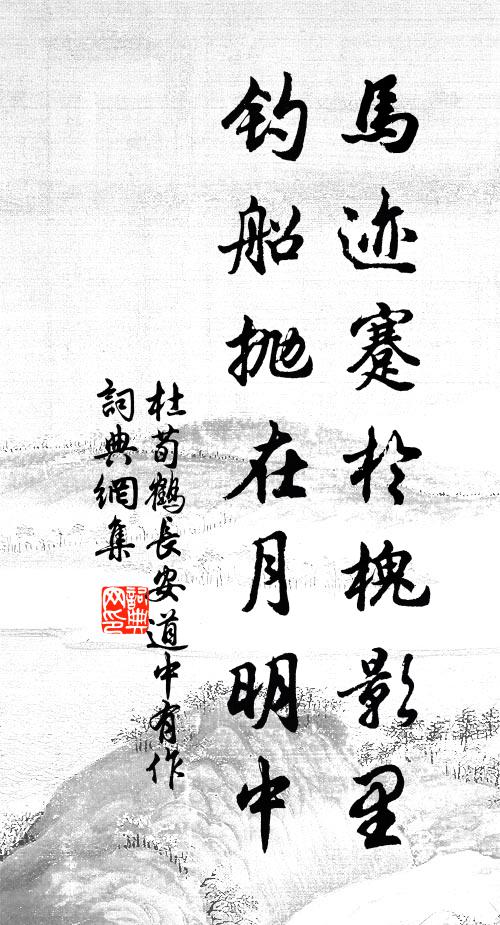 馬迹蹇於槐影里
钓船抛在月明中
杜荀鶴長安道中有作
詞典網集
詞典
网印